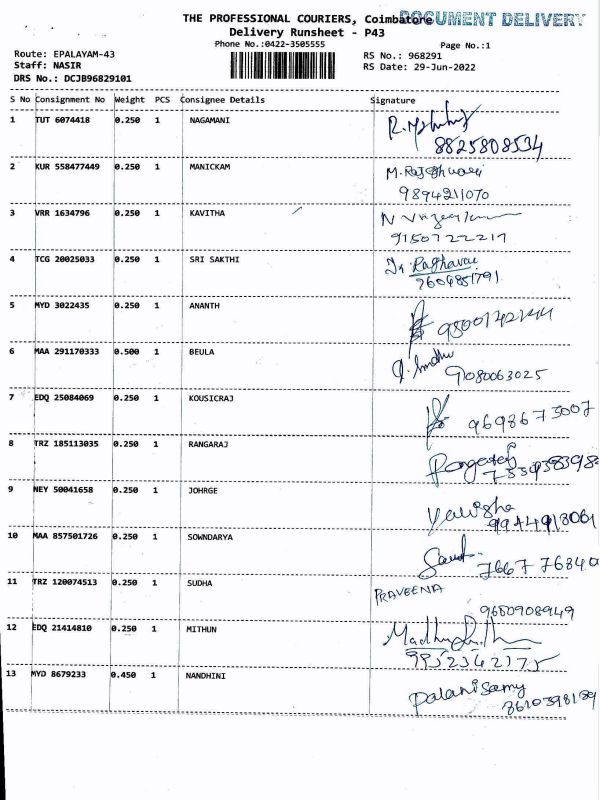 THE PROFESSIONAL COURIERS, Coimbatore DOCUMENT DELIVERY
Delivery Runsheet - P43
Phone No.:0422-3505555
Page No.:1
Route: EPALAYAM-43
RS No.: 968291
Staff: NASIR
RS Date: 29-Jun-2022
DRS No.: DCJB96829101
S No Consignment No Weight PCS Consignee Details Signature
1 TUT 6074418 0.250 1 NAGAMANI
8825808534
2 KUR 558477449 0.250 1 MANICKAM M. Rajeshwari
9894211070
3 VRR 1634796 0.250 1 KAVITHA
9150722217
4 TCG 20025033 0.250 1 SRI SAKTHI Raghavan
9604851791
5 MYD 3022435 0.250 1 ANANTH
9800142144
6 MAA 291170333 0.500 1 BEULA
9080063025
7 EDQ 25084069 0.250 1 KOUSICRAJ
9698673007
8 TRZ 185113035 0.250 1 RANGARAJ Rangaraj
9 NEY 50041658 0.250 1 JOHRGE
9944918061
10 MAA 857501726 0.250 1 SOWNDARYA
7667 76840
11 TRZ 120074513 0.250 1 SUDHA PRAVEENA
9650908949
12 EDQ 21414810 0.250 1 MITHUN
9952342175
13 MYD 8679233 0.450 1 NANDHINI Palanisamy
8610398189